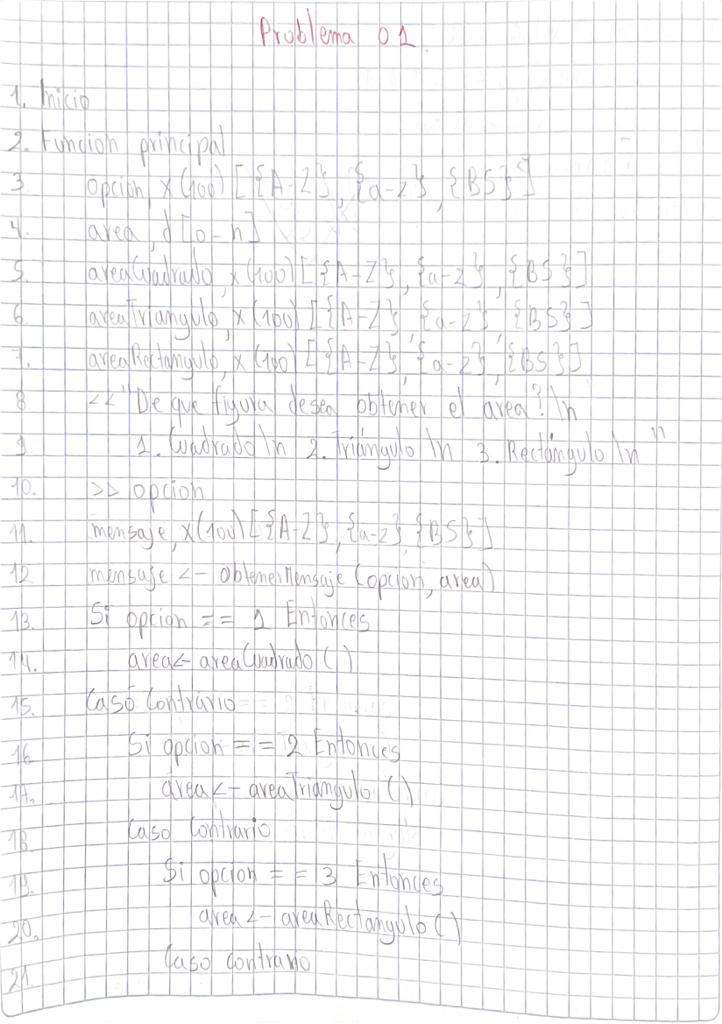 Problema 01
1. Inicio
2. Funcion principal
3 opcion, x(100) [{A-Z}, {a-z}, {BS}]
4. area, d [0-n]
5. areaCuadrado, x(100) [{A-Z}, {a-z}, {BS}]
6 areaTriangulo, x(100) [{A-Z}, {a-z}, {BS}]
7. areaRectangulo, x(100) [{A-Z}, {a-z}, {BS}]
8 << "De que figura desea obtener el area? \n
9 1. Cuadrado \n 2. Triángulo \n 3. Rectángulo \n"
10. >> opcion
11. mensaje, x(100) [{A-Z}, {a-z}, {BS}]
12 mensaje <- obtenerMensaje (opcion, area)
13. Si opcion == 1 Entonces
14. area <- areaCuadrado ()
15. Caso Contrario
16 Si opcion == 2 Entonces
17. area <- areaTriangulo ()
18 Caso Contrario
19. Si opcion == 3 Entonces
20. area <- areaRectangulo ()
21 Caso contrario